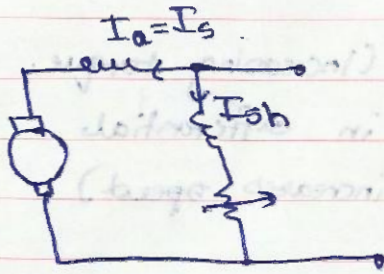 Ia = Is
Ish